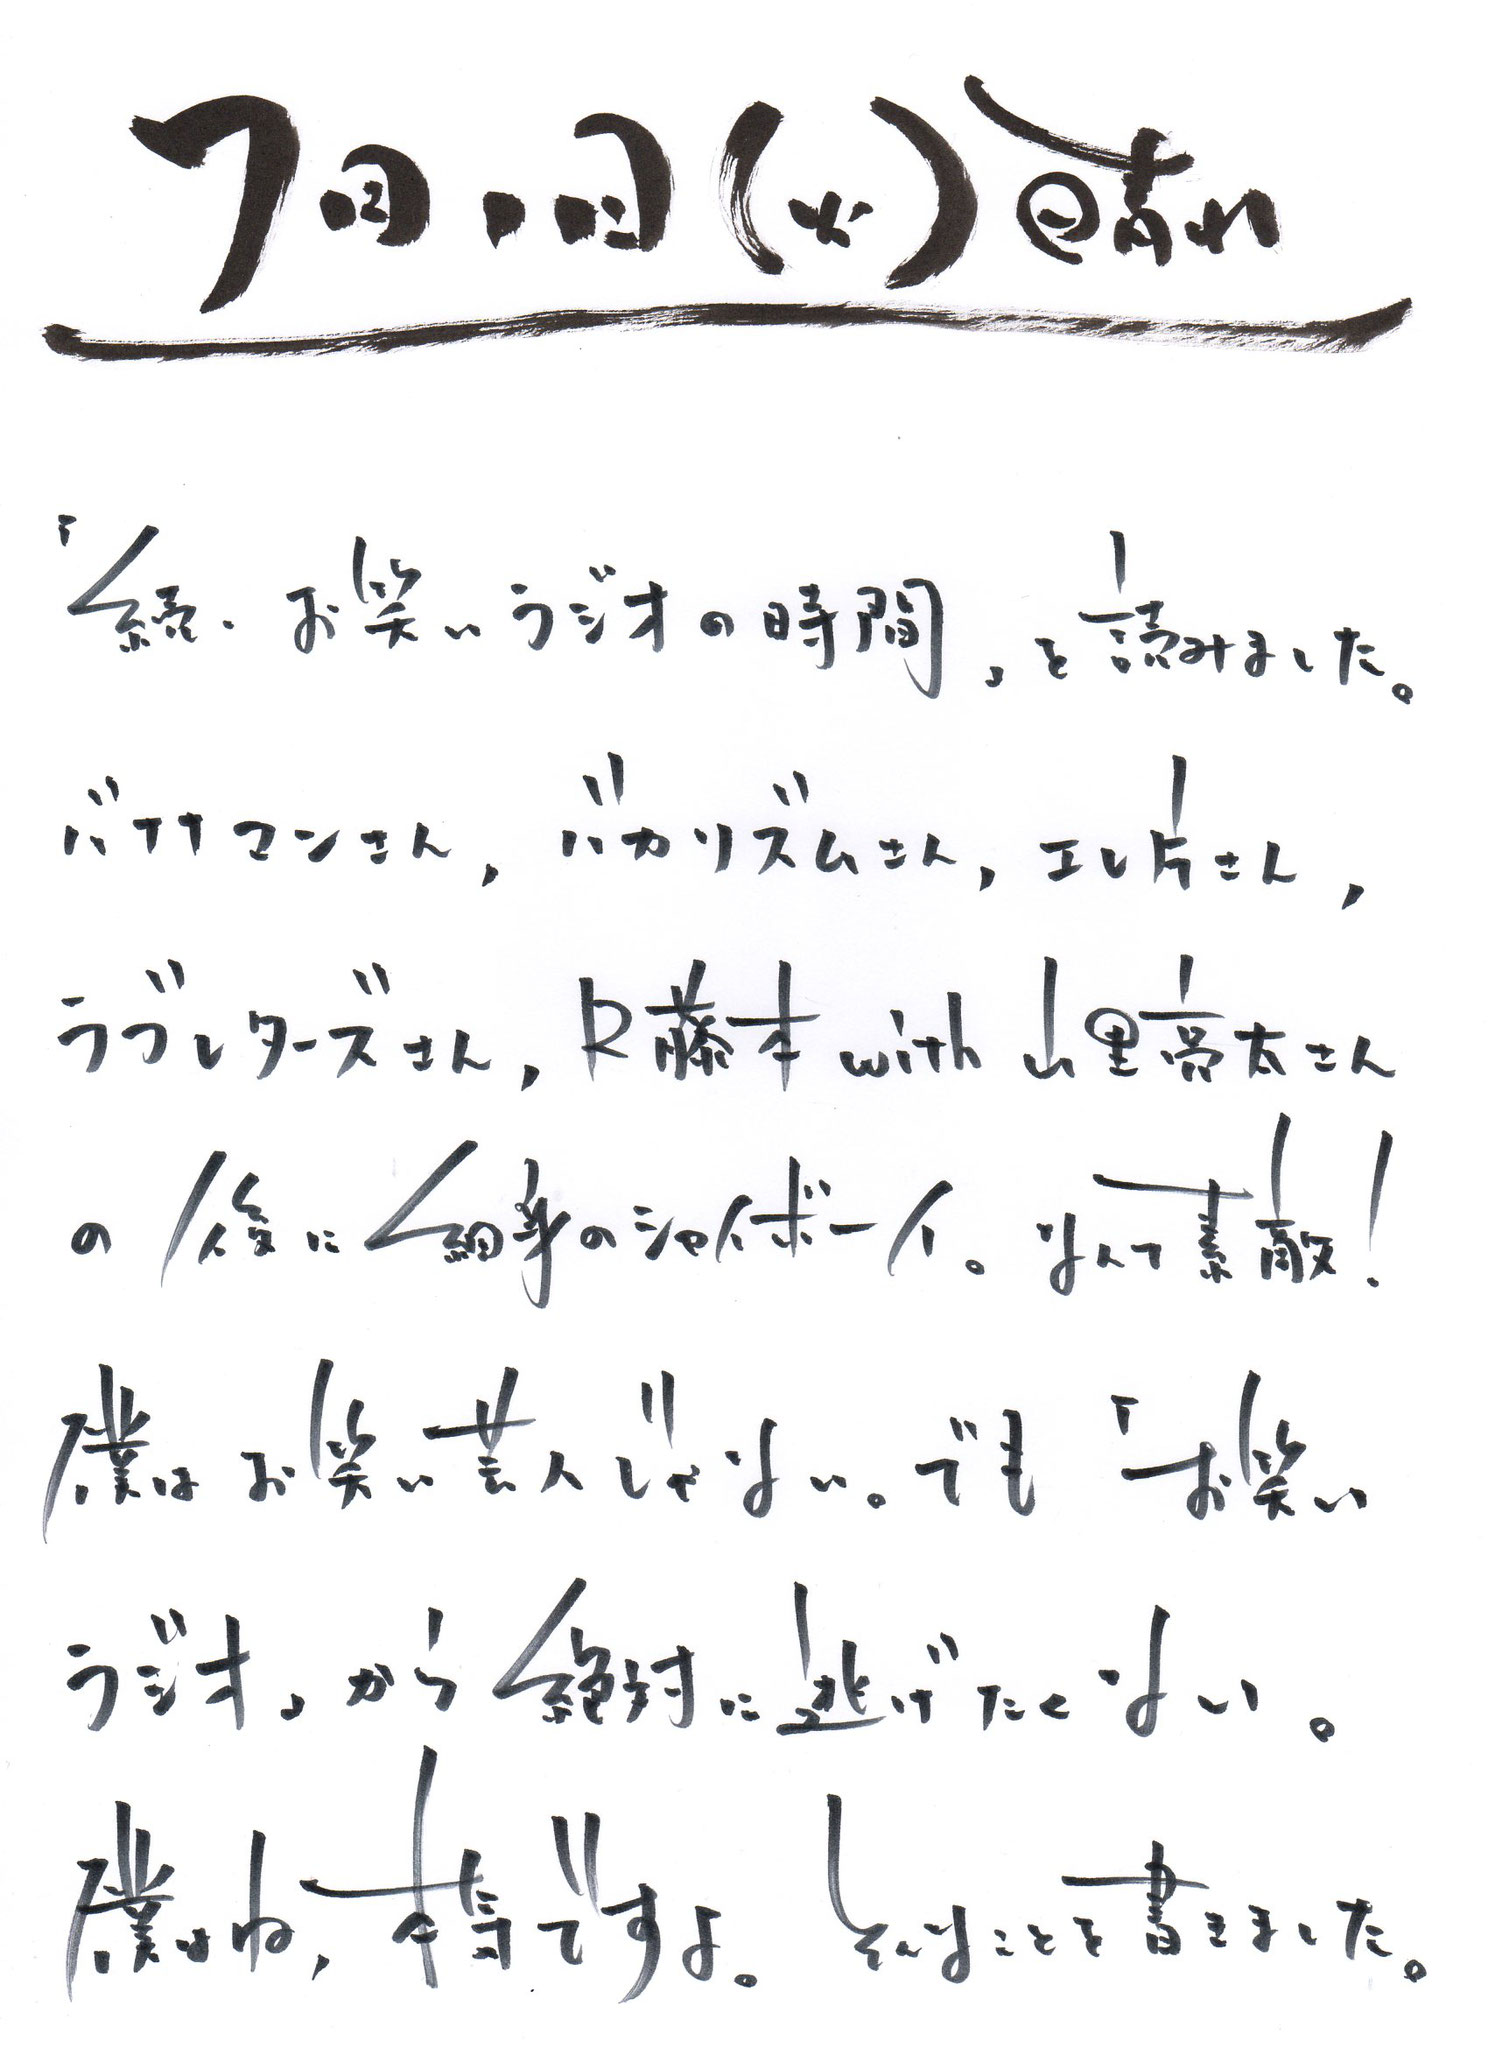 7月1日(火)晴れ
「続・お笑いラジオの時間」を読みました。
バナナマンさん,バカリズムさん,エレ片さん,
ラブレターズさん,R藤本with山里亮太さん
の後に細身のシャイボーイ。なんて素敵!
僕はお笑い芸人じゃない。でも「お笑い
ラジオ」から絶対に逃げたくない。
僕はね,本気ですよ。そんなことを書きました。